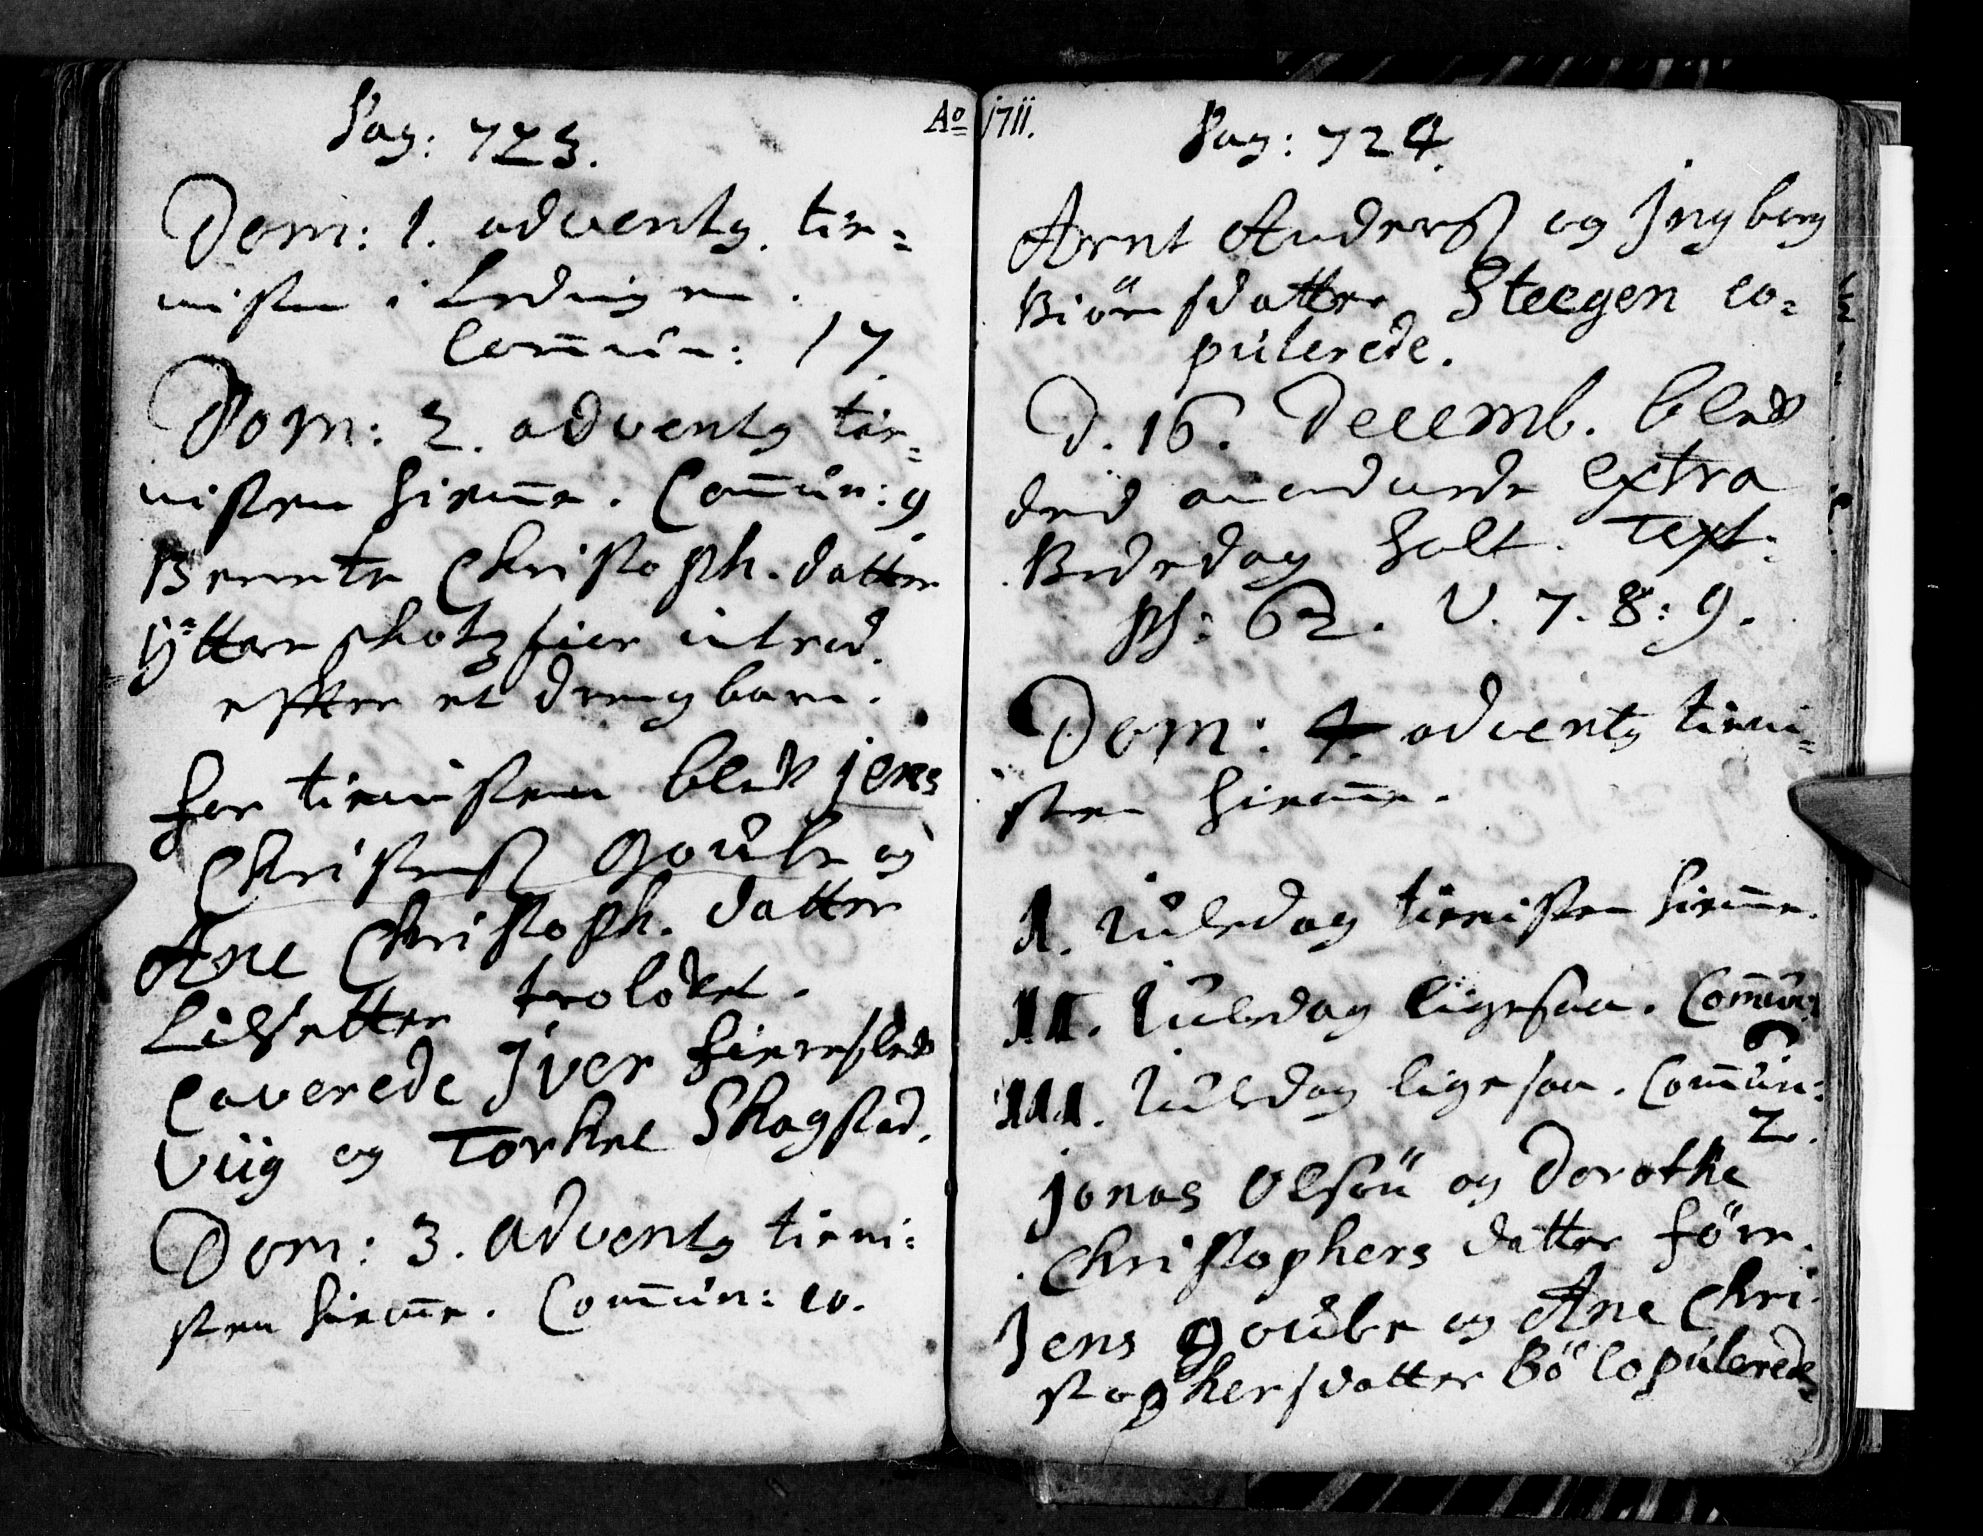 Pag: 723.
Dom: 1. advents tie-
nisten i Lødingen.
Commun: 17
Dom: 2. advents tie-
nisten hiemme. Commun: 9
Berrete Christoph. datter
Yttere skotzfior introd.
effter et drengbarn.
for tienisten blef jens
Christens. Goulbe og
Ane Christoph. datter
Lilsetter trolovet.
Caverede Iver fierresled
Viig og Torkel Skogstad.
Dom: 3. advents tieni-
sten hiemme. Commun: 10.
Ao 1711.
Pag: 724.
Arnt Anders. og Ingborg
Biörnsdatter Steegen co-
pulerede.
D. 16. Decemb. blef
den anordnede extra
Bededag holt. Text.
Ps: 62. V. 7. 8: 9.
Dom: 4. advents tieni-
sten hiemme.
I. Juledag tienisten hiemme.
II. Juledag ligesaa. Commun:
6
III. Juledag ligesaa. Commun:
2.
Jonas Olsön og Dorothe
Christophers datter före.
Jens Goulbe og Ane Chri-
stophersdatter Bö copulerede